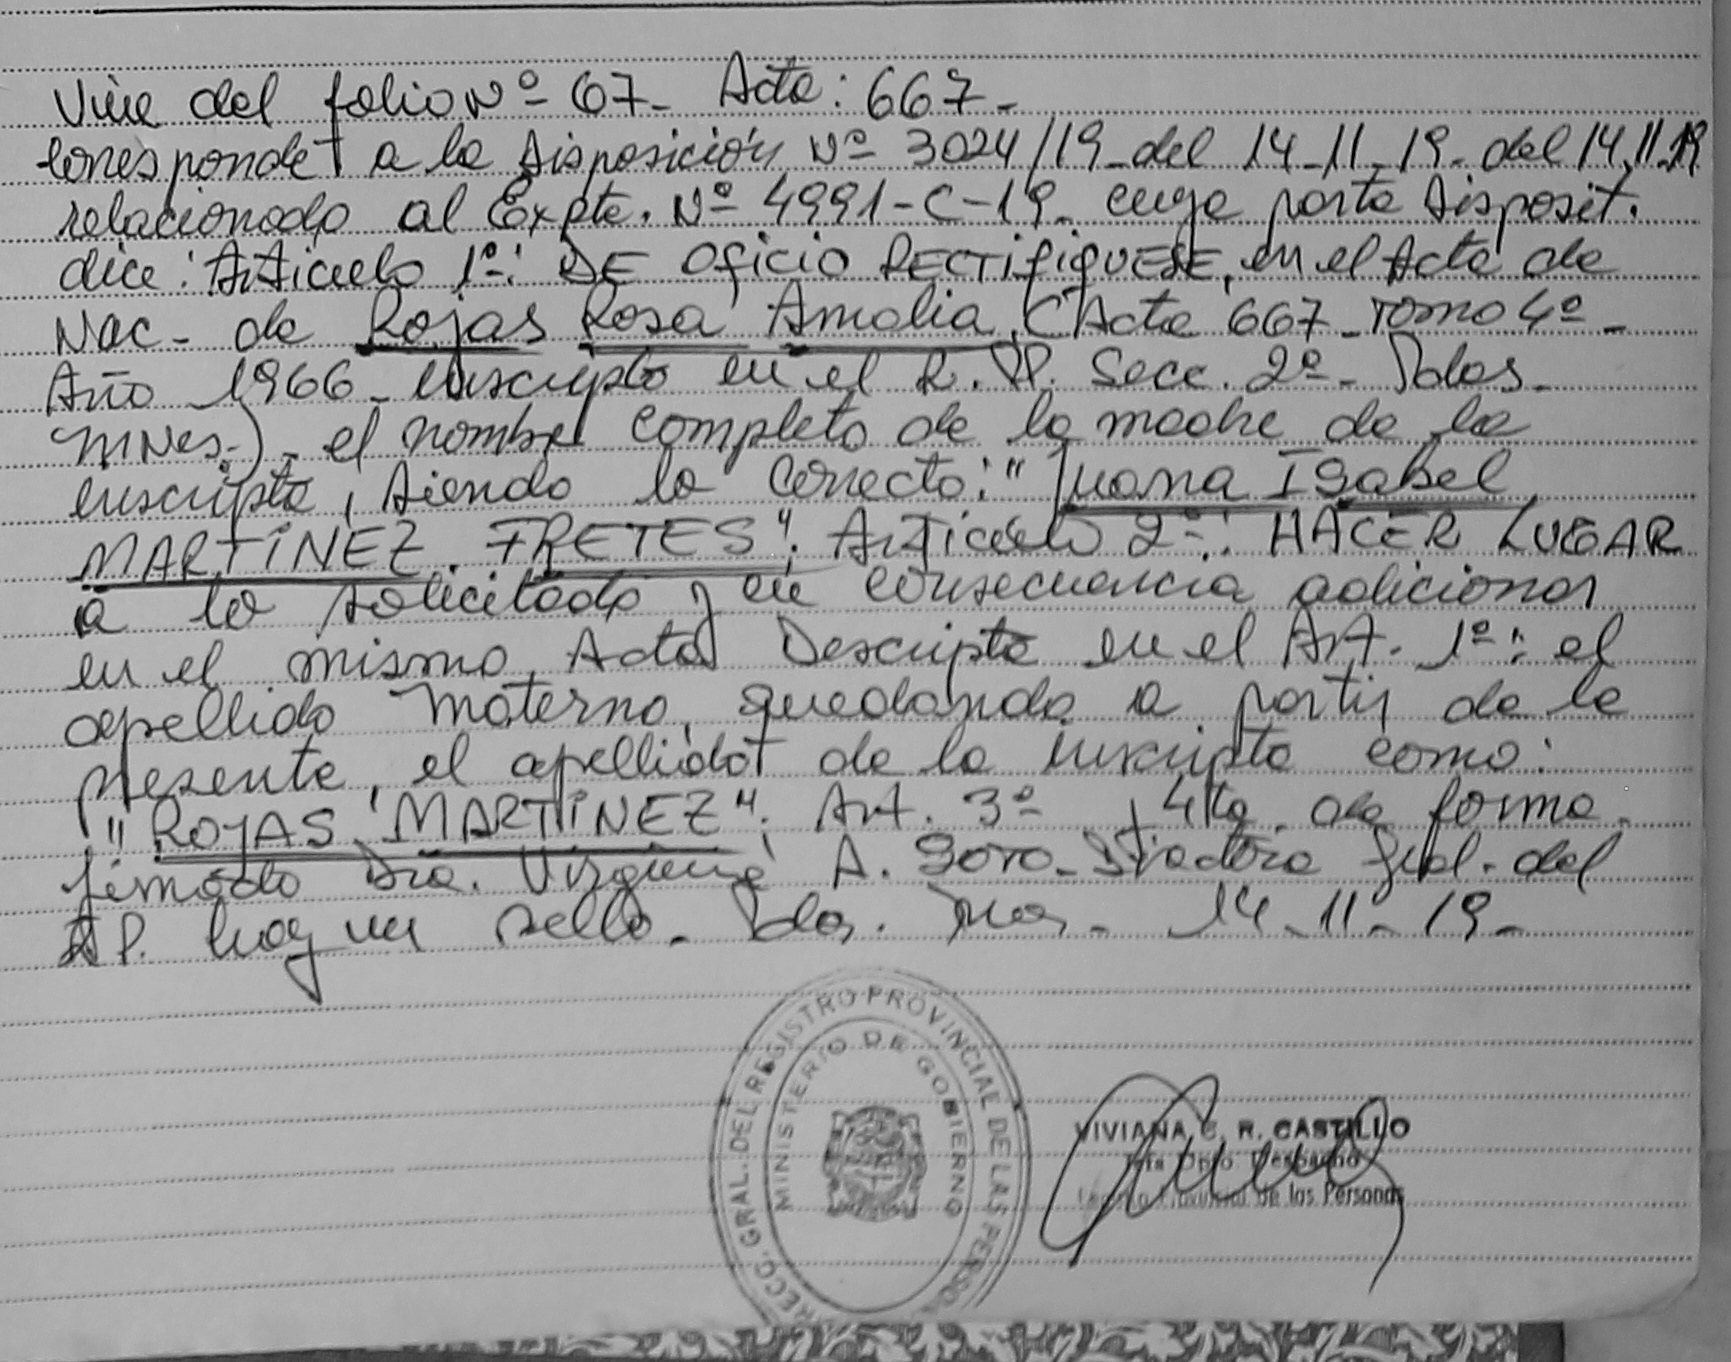 Viene del folio Nº 67- Acta: 667-
Corresponde a la Disposición Nº 3024/19-del 14-11-19. del 14.11.19
relacionado al Expte. Nº 4991-C-19- cuya parte Disposit.
dice: Artículo 1º: DE OFICIO RECTIFIQUESE, en el Acta de
Nac- de Rojas Rosa Amalia, (Acta 667-Tomo 4º-
Año 1966- inscripto en el R.P. Secc. 2º- Pdas.
MNes.)- el nombre completo de la madre de la
inscripta, siendo lo correcto: "Juana ISabel
MARTÍNEZ FRETES". Artículo 2º: HACER LUGAR
a lo solicitado y en consecuencia adicionar
en el mismo Acta Descripta en el Art. 1º: el
apellido materno, quedando a partir de la
presente, el apellido de la inscripta como:
"ROJAS MARTÍNEZ". Art. 3º y 4to. de forma.
firmado Dra. Virginia A. Gral. del
RP. hay un sello- Pdas. Mnes- 14-11-19-
DIRECC. GRAL. DEL REGISTRO PROVINCIAL DE LAS PERSONAS
MINISTERIO DE GOBIERNO
VIVIANA C. R. CASTILLO
Jefa Dpto. Despacho
Registro Provincial de las Personas